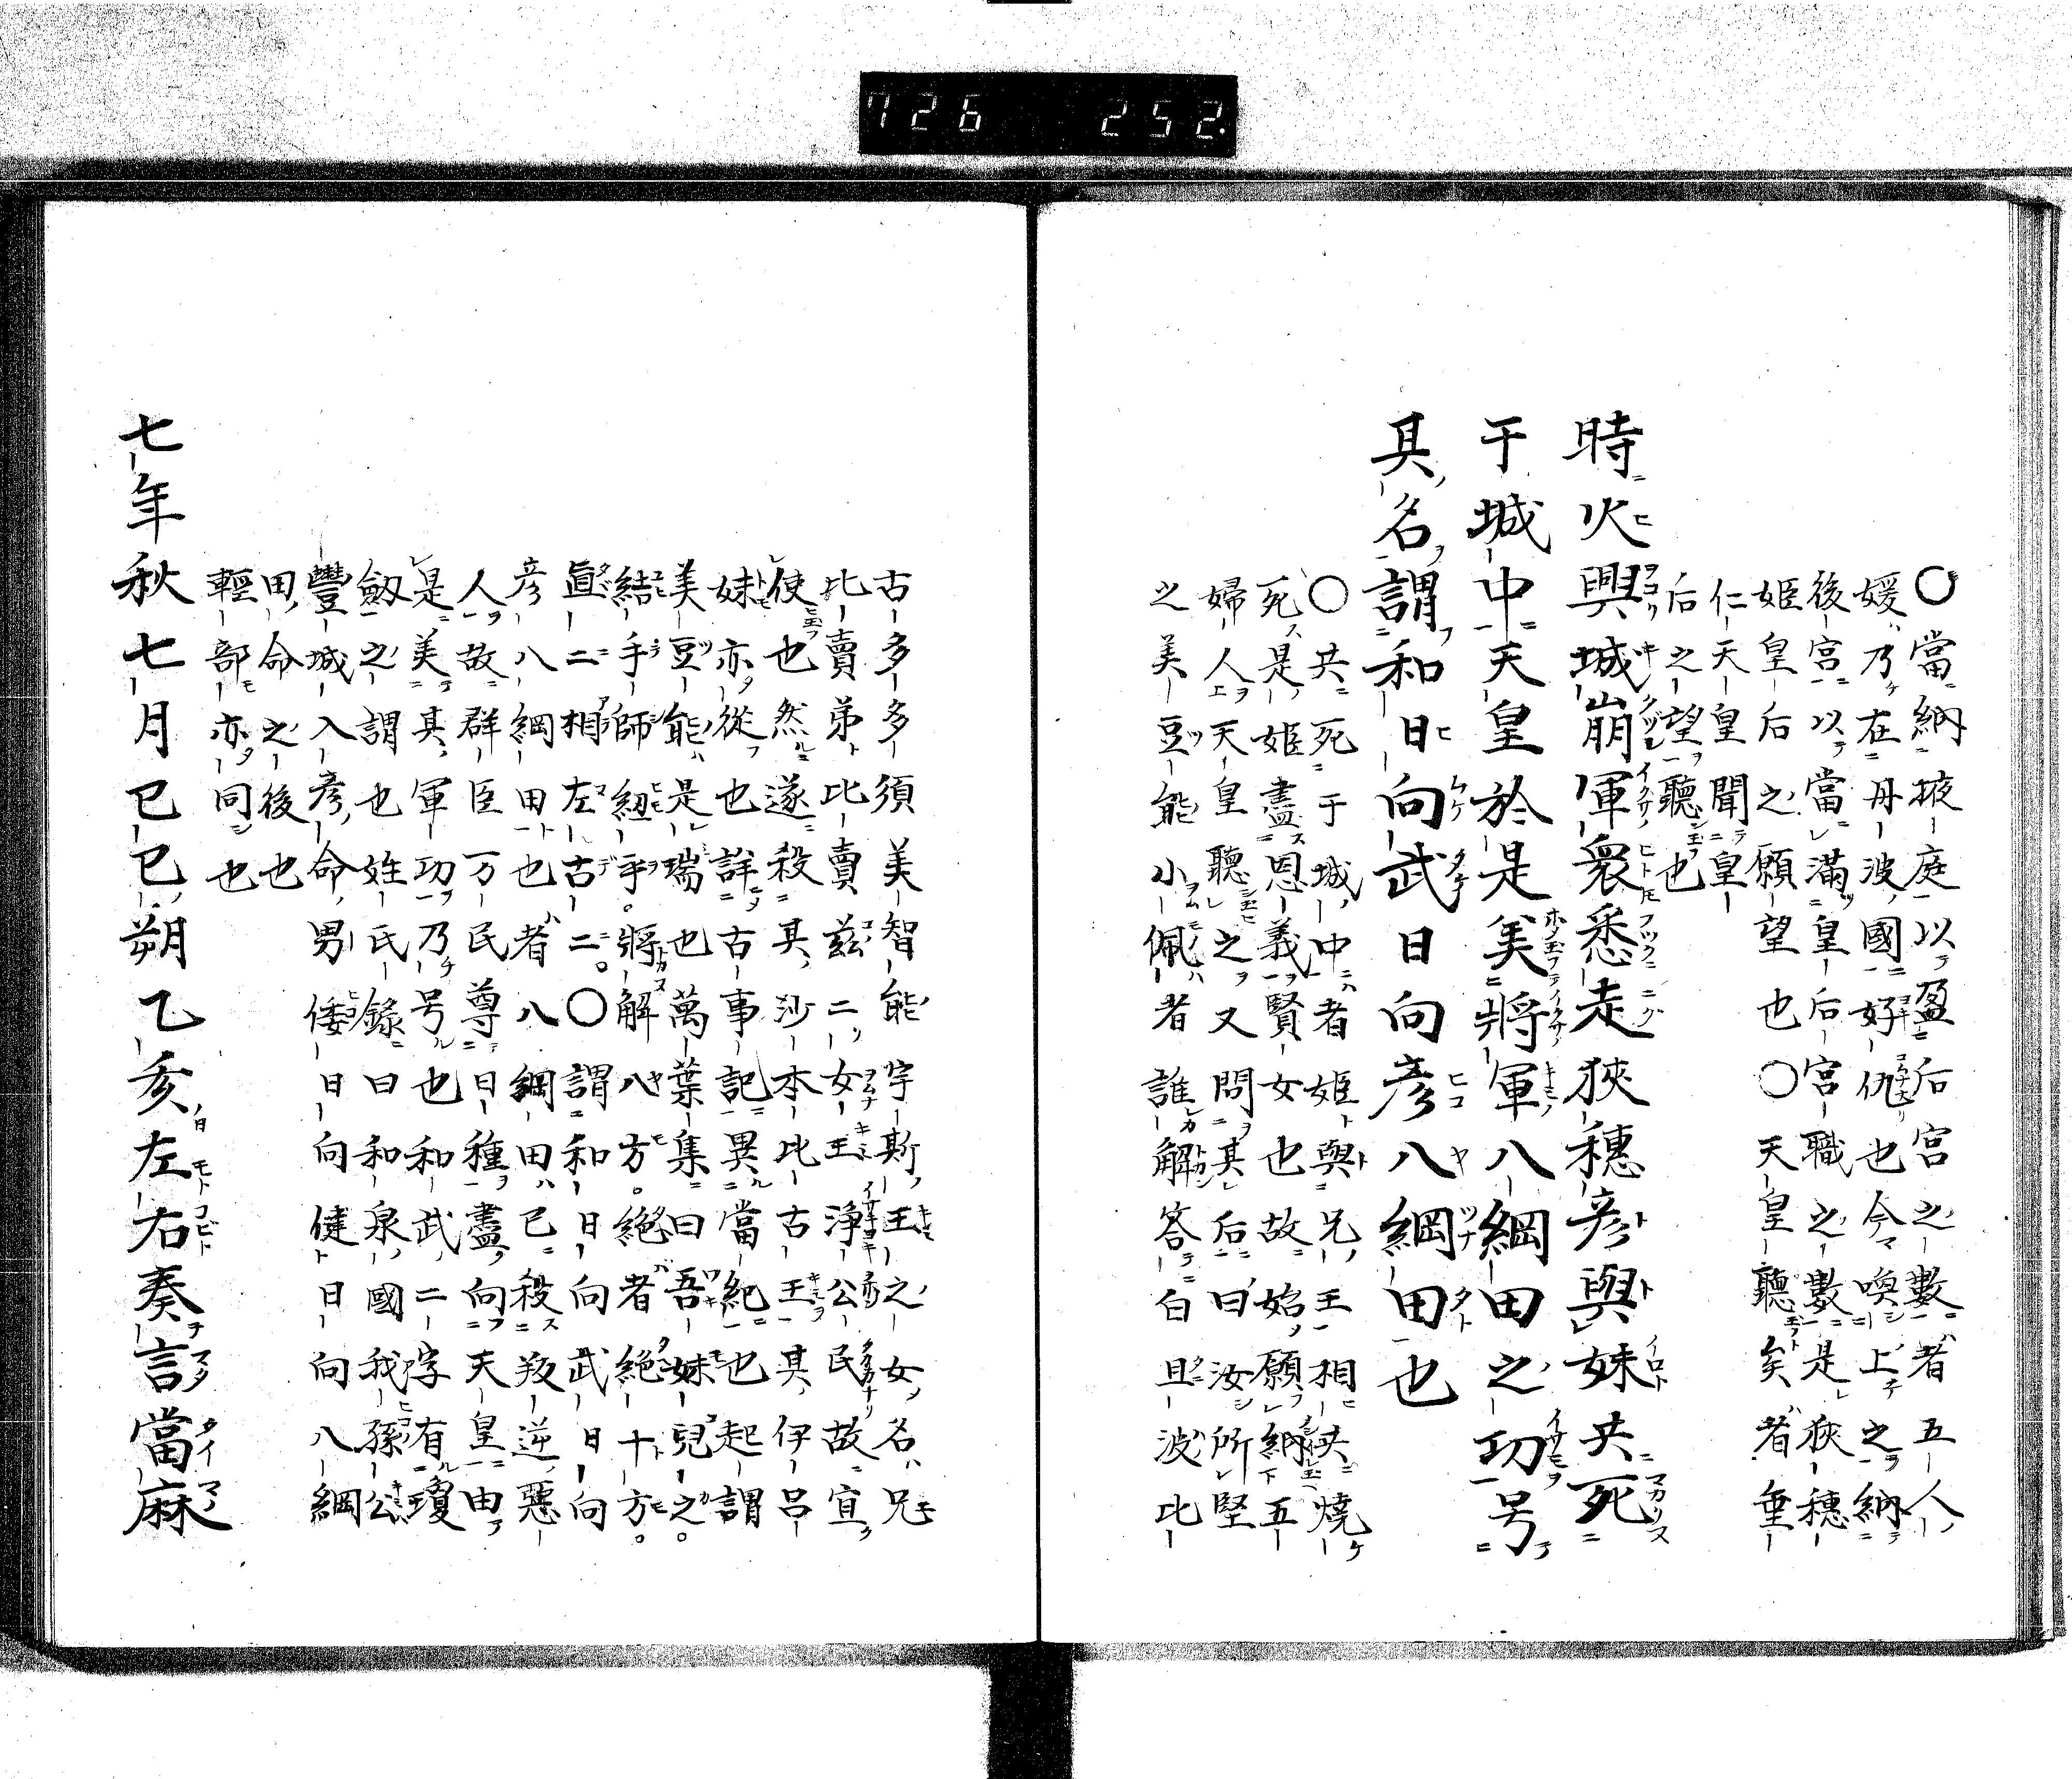 726 252.
〇當納掖庭以盈后宮之數者五人
媛乃在丹波國好仇也今喚上之納
後宮以當滿皇后宮職之數是狹穗
姬皇后之願望也〇天皇聽矣者垂
仁天皇聞皇
后之望聽也
時火興城崩軍衆悉走狹穗彥與妹共死
于城中天皇於是美將軍八綱田之功号
其名謂和日向武日向彥八綱田也
〇共死于城中者姬與兄王相共燒
死是姬盡恩義賢女也故始願納五
婦人天皇聽之又問其后曰汝所堅
之美豆能小佩者誰解答白旦波比
古多多須美智能宇斯王之女名兄
比賣弟比賣茲二女王淨公民故宜
使也然遂殺其沙本比古王其伊呂
妹亦從也詳古事記異當紀也起謂
美豆能是瑞也萬葉集曰吾妹兒之。
結手師紐手。將解八方。絕者絕十方。
眞二相左右二。〇謂和日向武日向
彥八綱田也者八綱田已殺叛逆惡
人故群臣万民尊曰種盡向天皇由
是美其軍功乃号也和武二字有瓊
劔之謂也姓氏錄曰和泉國我孫公
豐城入彥命男倭日向健日向八綱
田命之後也
輕部亦同也
七年秋七月己巳朔乙亥左右奏言當麻